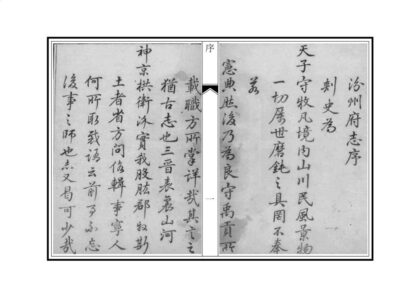 汾州府志序
刺史為
天子守牧凡境内山川民風景物
一切厲世磨鈍之具罔不奉
若
憲典然後乃為良守禹貢所
序
一
載職方所掌詳哉其言之
猶古志也三晉表裏山河
神京拱衛汾實我股肱郡牧斯
土者省方問俗輯事寧人
何所取哉語云前事不忘
後事之師也志又曷可少哉